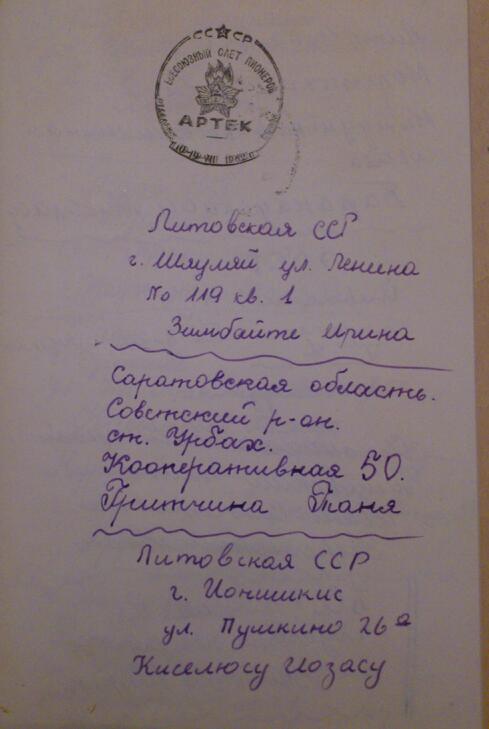 СССР
ВСЕСОЮЗНЫЙ СЛЕТ ПИОНЕРОВ
АРТЕК
Литовская ССР
г. Шяуляй ул. Ленина
No 119 кв. 1
Зимбайте Ирина
Саратовская область.
Советский р-он.
ст. Урбах.
Кооперативная 50.
Притчина Таня
Литовская ССР
г. Ионишкис
ул. Пушкино 26а
Киселюсу Иозасу